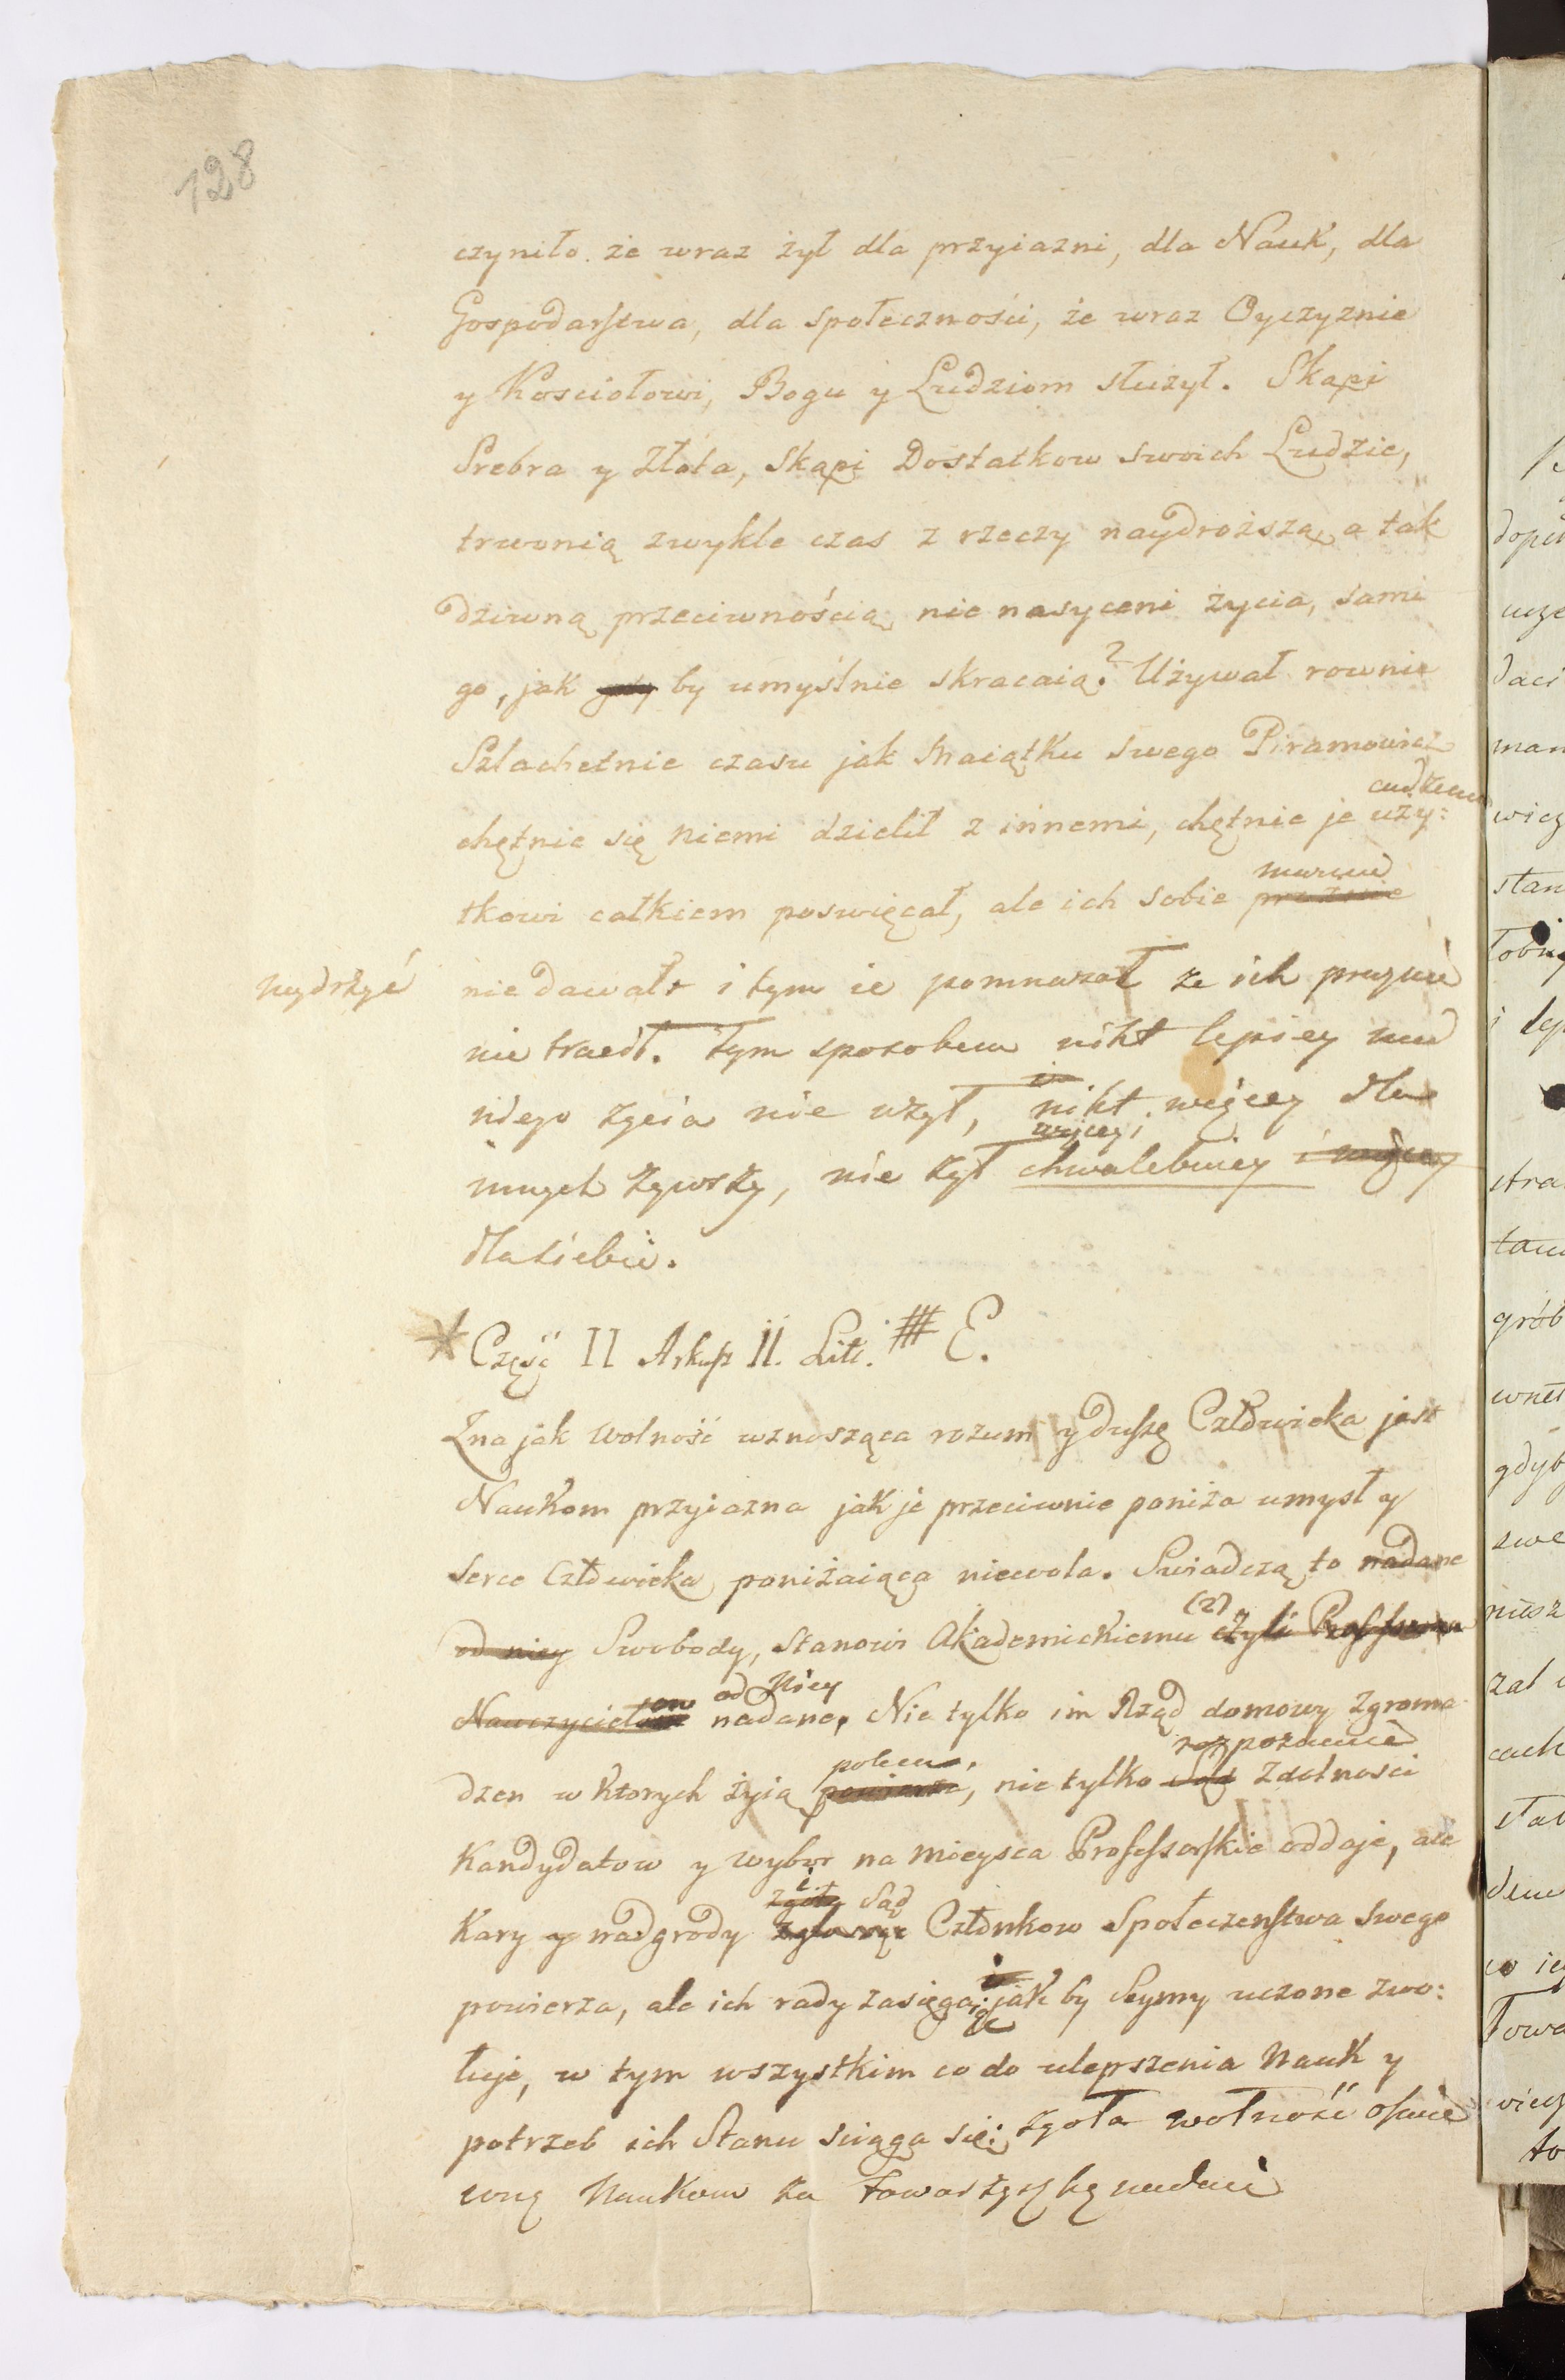 128
czyniło. że wraz żył dla przyiazni, dla Nauk, dla
Gospodarstwa, dla społeczności, że wraz Oyczyznie
y Kosciołowi, Bogu y Ludziom służył. Skąpi
Srebra y złota, Skąpi Dostatkow swoich Ludzie,
trwonią zwykle czas z rzeczy naydroższą, a tak
dziwną przeciwnością, nie nasyceni życia, sami
go, jak gdy by umyślnie skracaią? Używał rownie
Szlachetnie czasu jak Maiątku swego Piramowicz
cudzemu
chętnie się niemi dzielił z innemi, chętnie je uży:
marnie
tkowi całkiem poswięcał, ale ich sobie prożnie
wydrzyć
nie dawał i tym ie pomnażał że ich prożnie
nie tracił. Tym sposobem nikt lepiey nad
niego życia nie użył, nikt więcey dla
więcey i
innych żywszy, nie żył chwalebniey i więcey
dla siebie.
* Część II Arkusz II. Lit. # E.
Zna jak wolność wznosząca rozum y duszę Człowieka jest
Naukom przyiazna jak je przeciwnie poniża umysł y
serce Człowieka poniżaiąca niewola. Swiadczą to nadane
(2)
od niey Swobody, Stanowi Akademickiemu czyli Professorow
ow od Niey
Nauczycielow nadane, Nie tylko im Rząd domowy zgroma
poleca, rozpoznanie
dzen w ktorych żyią powierza, nie tylko Sąd Zdolnosci
Kandydatow y wybor na mieysca Professorskie oddaje, ale
i
zgoła Sąd
Kary y nadgrody Członkow Społeczenstwa swego
i
powierza, ale ich rady zasięgaiąc jak by Seymy uczone zwo:
łuje, w tym wszystkim co do ulepszenia Nauk y
potrzeb ich Stanu sciąga się: zgoła wolność
Naukom za towarzyszkę nadaie